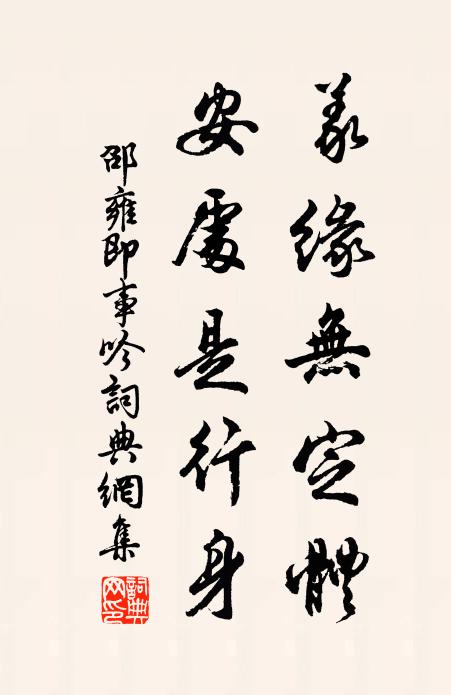 義緣無定體
安處是行身
邵雍即事吟詞典網集
詞典網印